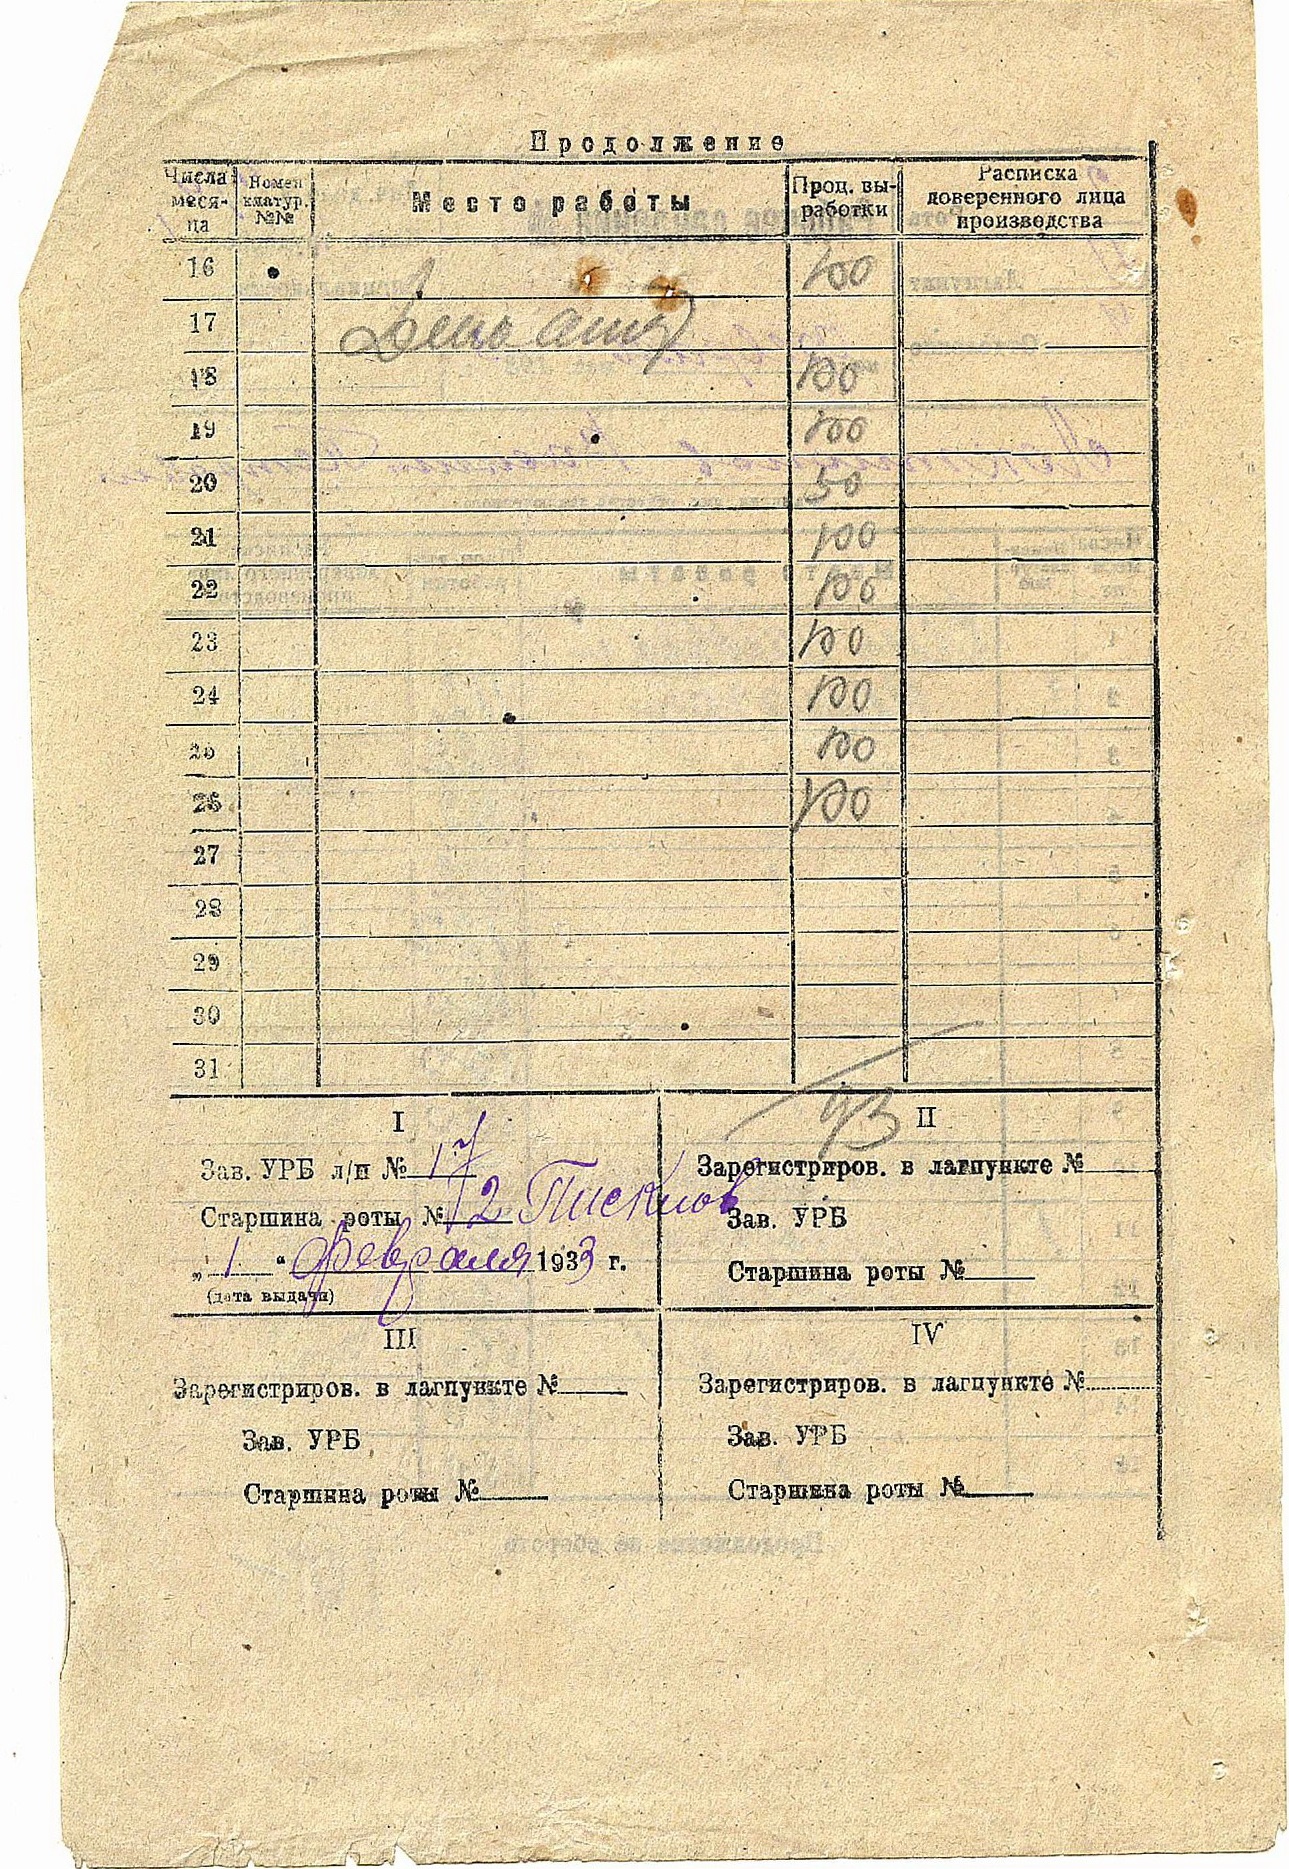 Продолжение
Числа месяца Номенклатур. №№ Место работы Проц. выработки Расписка доверенного лица производства
16 100
17
18 100
19 100
20 50
21 100
22 100
23 100
24 100
25 100
26 100
27
28
29
30
31
93
I
Зав. УРБ л/п № 17
Старшина роты № 2 Пискнов
„ 1 “ февраля 1933 г.
(дата выдачи)
II
Зарегистриров. в лагпункте №
Зав. УРБ
Старшина роты №
III
Зарегистриров. в лагпункте №
Зав. УРБ
Старшина роты №
IV
Зарегистриров. в лагпункте №
Зав. УРБ
Старшина роты №